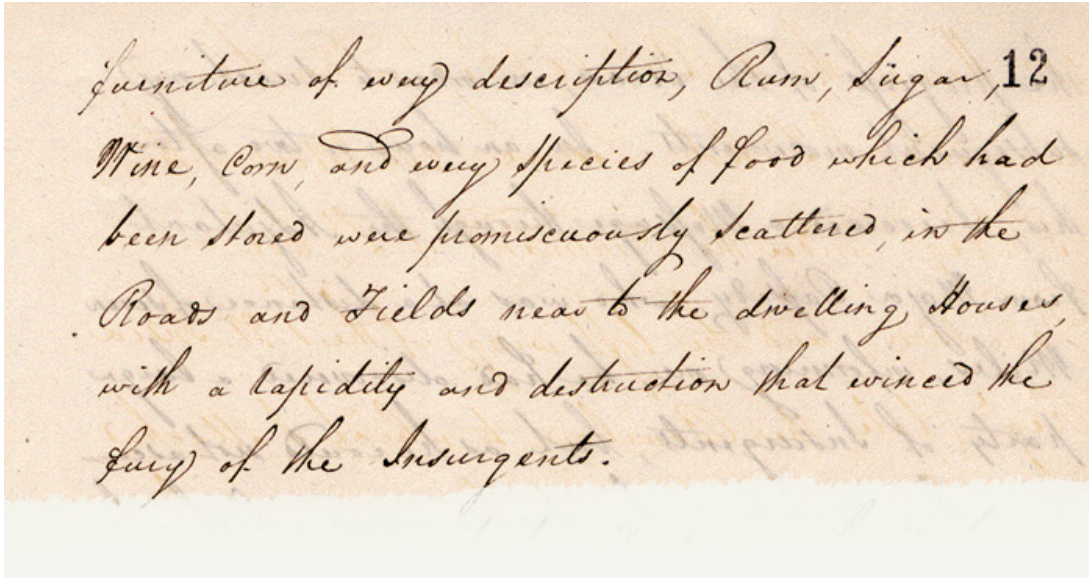 furniture of every description, Rum, Sugar, 12
Wine, Corn, and every species of food which had
been stored were promiscuously scattered, in the
Roads and Fields near to the dwelling Houses,
with a rapidity and destruction that evinced the
fury of the Insurgents.